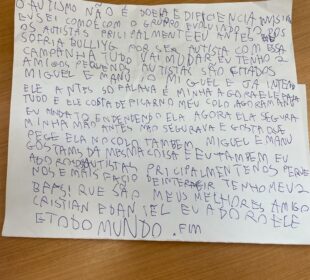 O AUTISMO NÃO É DOEÇA E DIFICIENCIA INVISIVI
COMEÇOM O GRUMPO EVOLUINDO
OS AUTISTAS PRICIPALMENTE EU ANTES EU
SOFRIA BULLIYG POR SER AUTISTA COM ESSA
CAMPANHA TUDO VAI MUDAR EU TENHO 2
AMIGOS PEQUENOS AUTISTAS SÃO
MIGUEL E MANU O MIGUEL E JÁ
ELE ANTES SO FALAVA É MINHA AGORA ELE
TUDO E ELE COSTA DE FICAR NO MEU COLO AGORA MANU
EU ENDENDENDO ELA AGORA ELA SEGURA
MINHA MÃO ANTES NÃO SEGURAVA E GOSTA QUE
PEGE ELA NO COLO TAMBEM MIGUEL E MANU
GOSTAMS DA MESMA COISA E EU TAMBEM EU
ADORO AUTISTAL PRICIPALMENTE NOS PEQUE
NOS E MAIS FACIO DE INTERAGIR TENHO MEU 2
QUE SÃO MEUS MELHORES AMIGO
CRISTIAN E DANIEL EU ADORO ELE
E TODO MUNDO . FIM